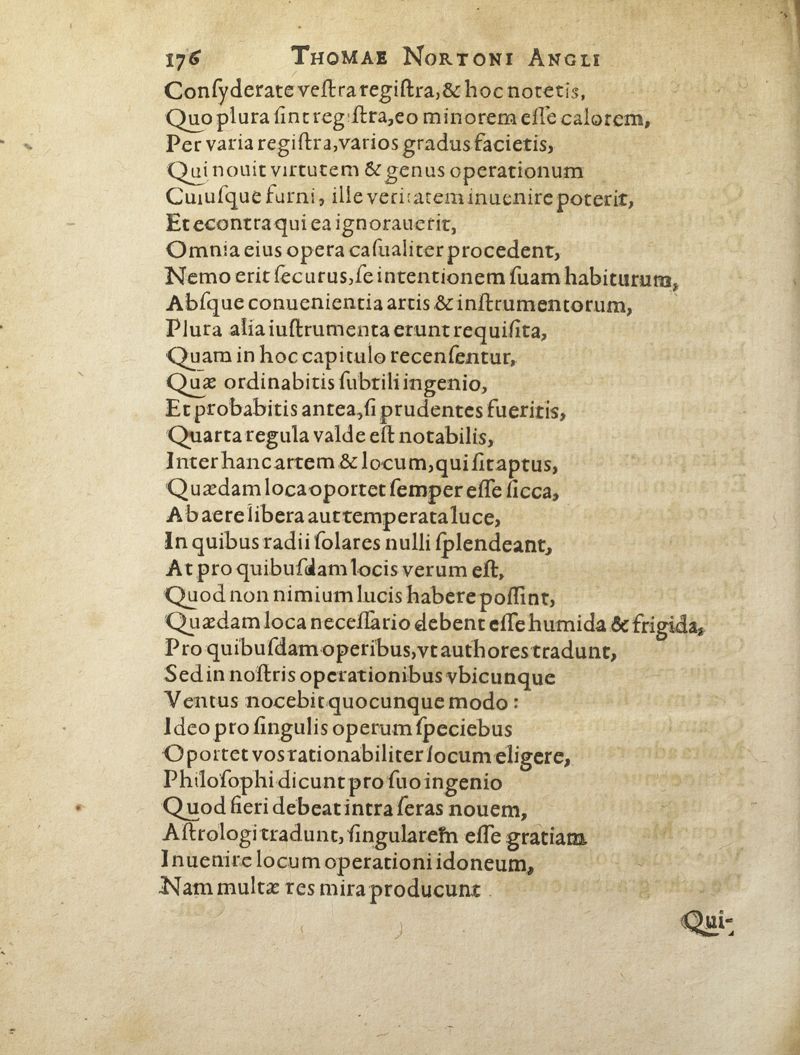 176 THOMAE NORTONI ANGLI
Conſyderate veſtra regiſtra,& hoc notetis,
Quo plura ſint reg ſtra,eo minorem eſſe calorem,
Per varia regiſtra,varios gradus facietis,
Qui nouit virtutem & genus operationum
Cuiuſque furni, ille veritatem inuenire poterit,
Et econtra qui ea ignorauerit,
Omnia eius opera caſualiter procedent,
Nemo erit ſecurus,ſe intentionem ſuam habiturum,
Abſque conuenientia artis & inſtrumentorum,
Plura alia iuſtrumenta erunt requiſita,
Quam in hoc capitulo recenſentur,
Quæ ordinabitis ſubtili ingenio,
Et probabitis antea,ſi prudentes fueritis,
Quarta regula valde eſt notabilis,
Inter hanc artem & locum,qui ſit aptus,
Quædam loca oportet ſemper eſſe ſicca,
Ab aere libera aut temperata luce,
In quibus radii ſolares nulli ſplendeant,
At pro quibuſdam locis verum eſt,
Quod non nimium lucis habere poſſint,
Quædam loca neceſſario debent eſſe humida & frigida,
Pro quibuſdam operibus,vt authores tradunt,
Sed in noſtris operationibus vbicunque
Ventus nocebit quocunque modo :
Ideo pro ſingulis operum ſpeciebus
Oportet vos rationabiliter locum eligere,
Philoſophi dicunt pro ſuo ingenio
Quod fieri debeat intra feras nouem,
Aſtrologi tradunt, ſingularem eſſe gratiam
Inuenire locum operationi idoneum,
Nam multæ res mira producunt
Qui-